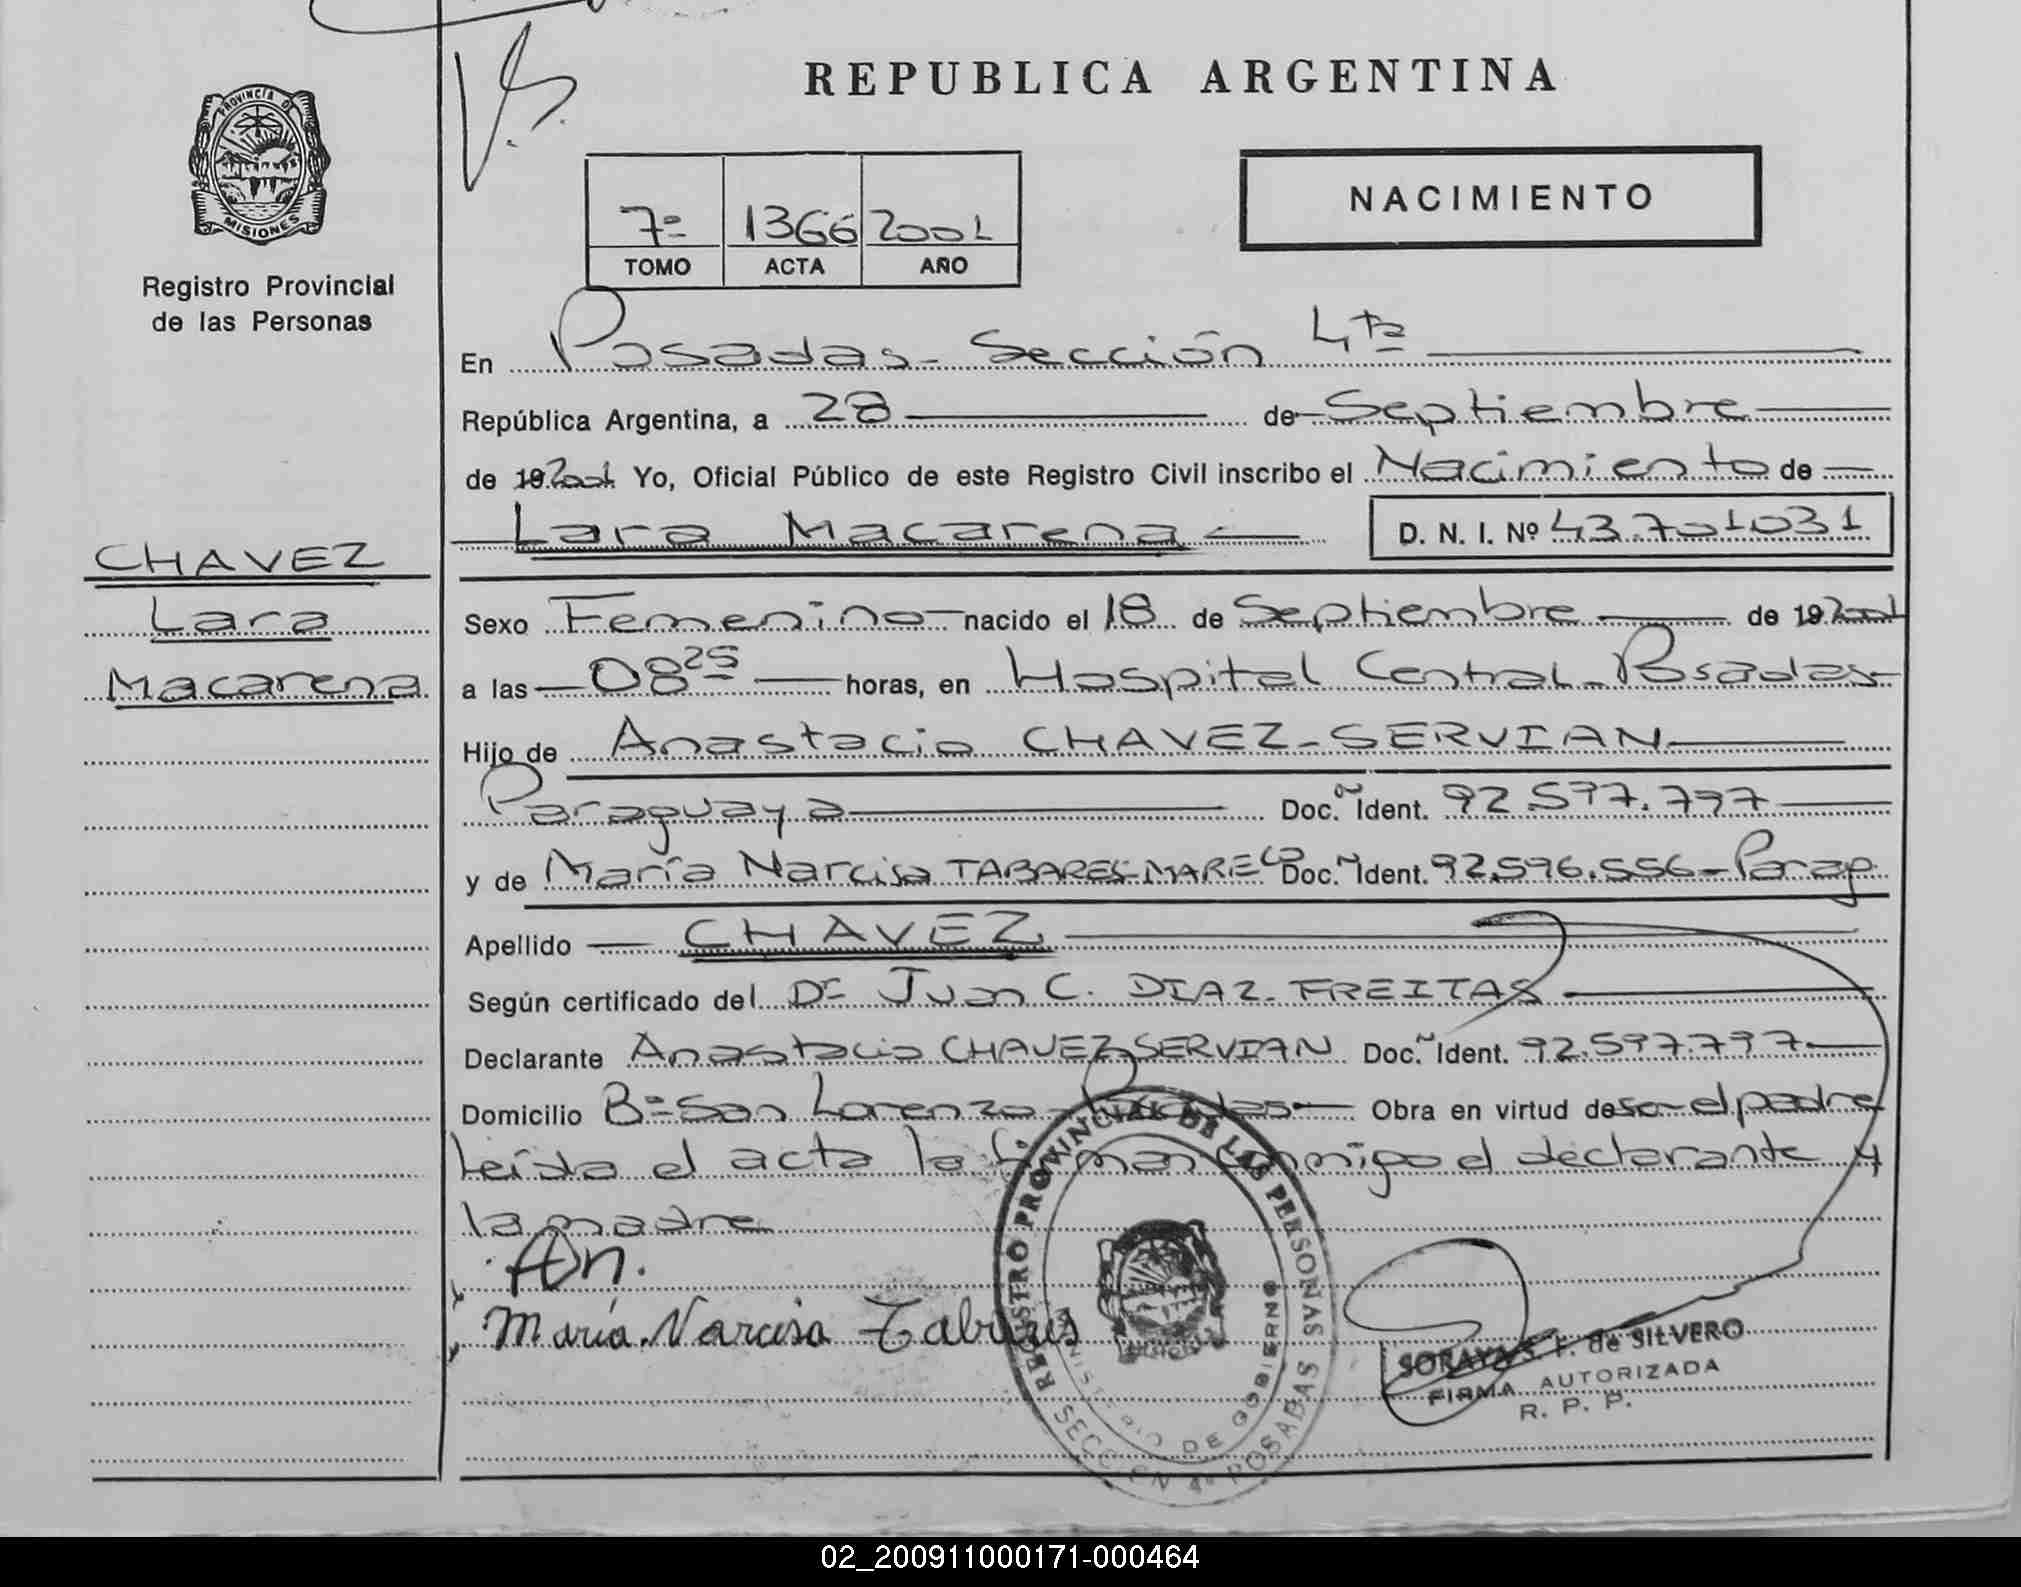 REPUBLICA ARGENTINA
PROVINCIA D
MISIONES
Registro Provincial
de las Personas
NACIMIENTO
7º 1366 2001
TOMO ACTA AÑO
En Posadas - Sección 4ta
República Argentina, a 28 de Septiembre
de 19 2001 Yo, Oficial Público de este Registro Civil inscribo el Nacimiento de
Lara Macarena D. N. I. Nº 43.701031
CHAVEZ
Lara
Macarena
Sexo Femenino nacido el 18 de Septiembre de 19 2001
a las 08 25 horas, en Hospital Central - Posadas -
Hijo de Anastacio CHAVEZ - SERVIAN
Paraguaya Doc. Ident. 92.597.797
y de María Narcisa TABARES - MARECO Doc. Ident. 92.596.556 - Parag
Apellido CHAVEZ
Según certificado del Dr Juan C. DIAZ - FREITAS
Declarante Anastacio CHAVEZ SERVIAN Doc. Ident. 92.597.797
Domicilio Bº San Lorenzo - Posadas Obra en virtud de ser el padre
Leída el acta la firman conmigo el declarante y
la madre
An.
María Narcisa
REGISTRO PROVINCIAL DE LAS PERSONAS
MINISTERIO DE GOBIERNO
SECCION 4º POSADAS
SORAYA S. F. de SILVERO
FIRMA AUTORIZADA
R. P. P.
02_200911000171-000464